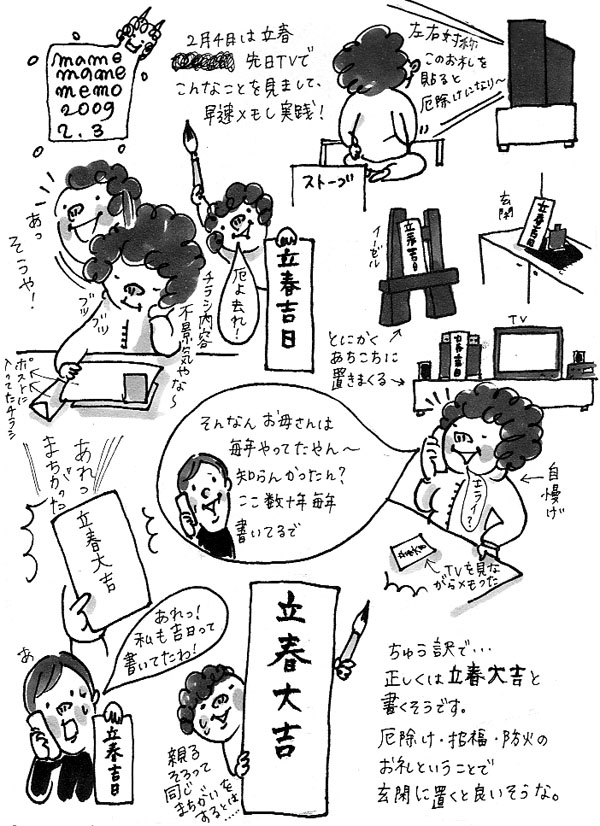 mame
mame
memo
2009
2.3
2月4日は立春
先日TVで
こんなことを見まして、
早速メモし実践!
左右対称
このお札を
貼ると
厄除けになり〜
ストーブ
あっ
そうや!
ブツ
ブツ
チラシ内容
不景気やな〜
ポストに
入ってたチラシ
厄よ去れ!
立春吉日
イーゼル
立春吉日
玄関
立春吉日
とにかく
あちこちに
置きまくる
TV
立春吉日
そんなん お母さんは
毎年やってたやん〜
知らんかったん?
ここ数十年毎年
書いてるで
エライ?
自慢げ
TVを見な
がらメモった
あれっ
まちがった
立春大吉
あれっ!
私も吉日って
書いてたわ!
あ
立春吉日
親子
そろって
同じ
まちがいを
するとは……
立春大吉
ちゅう訳で…
正しくは立春大吉と
書くそうです。
厄除け・招福・防火の
お札ということで
玄関に置くと良いそうな。